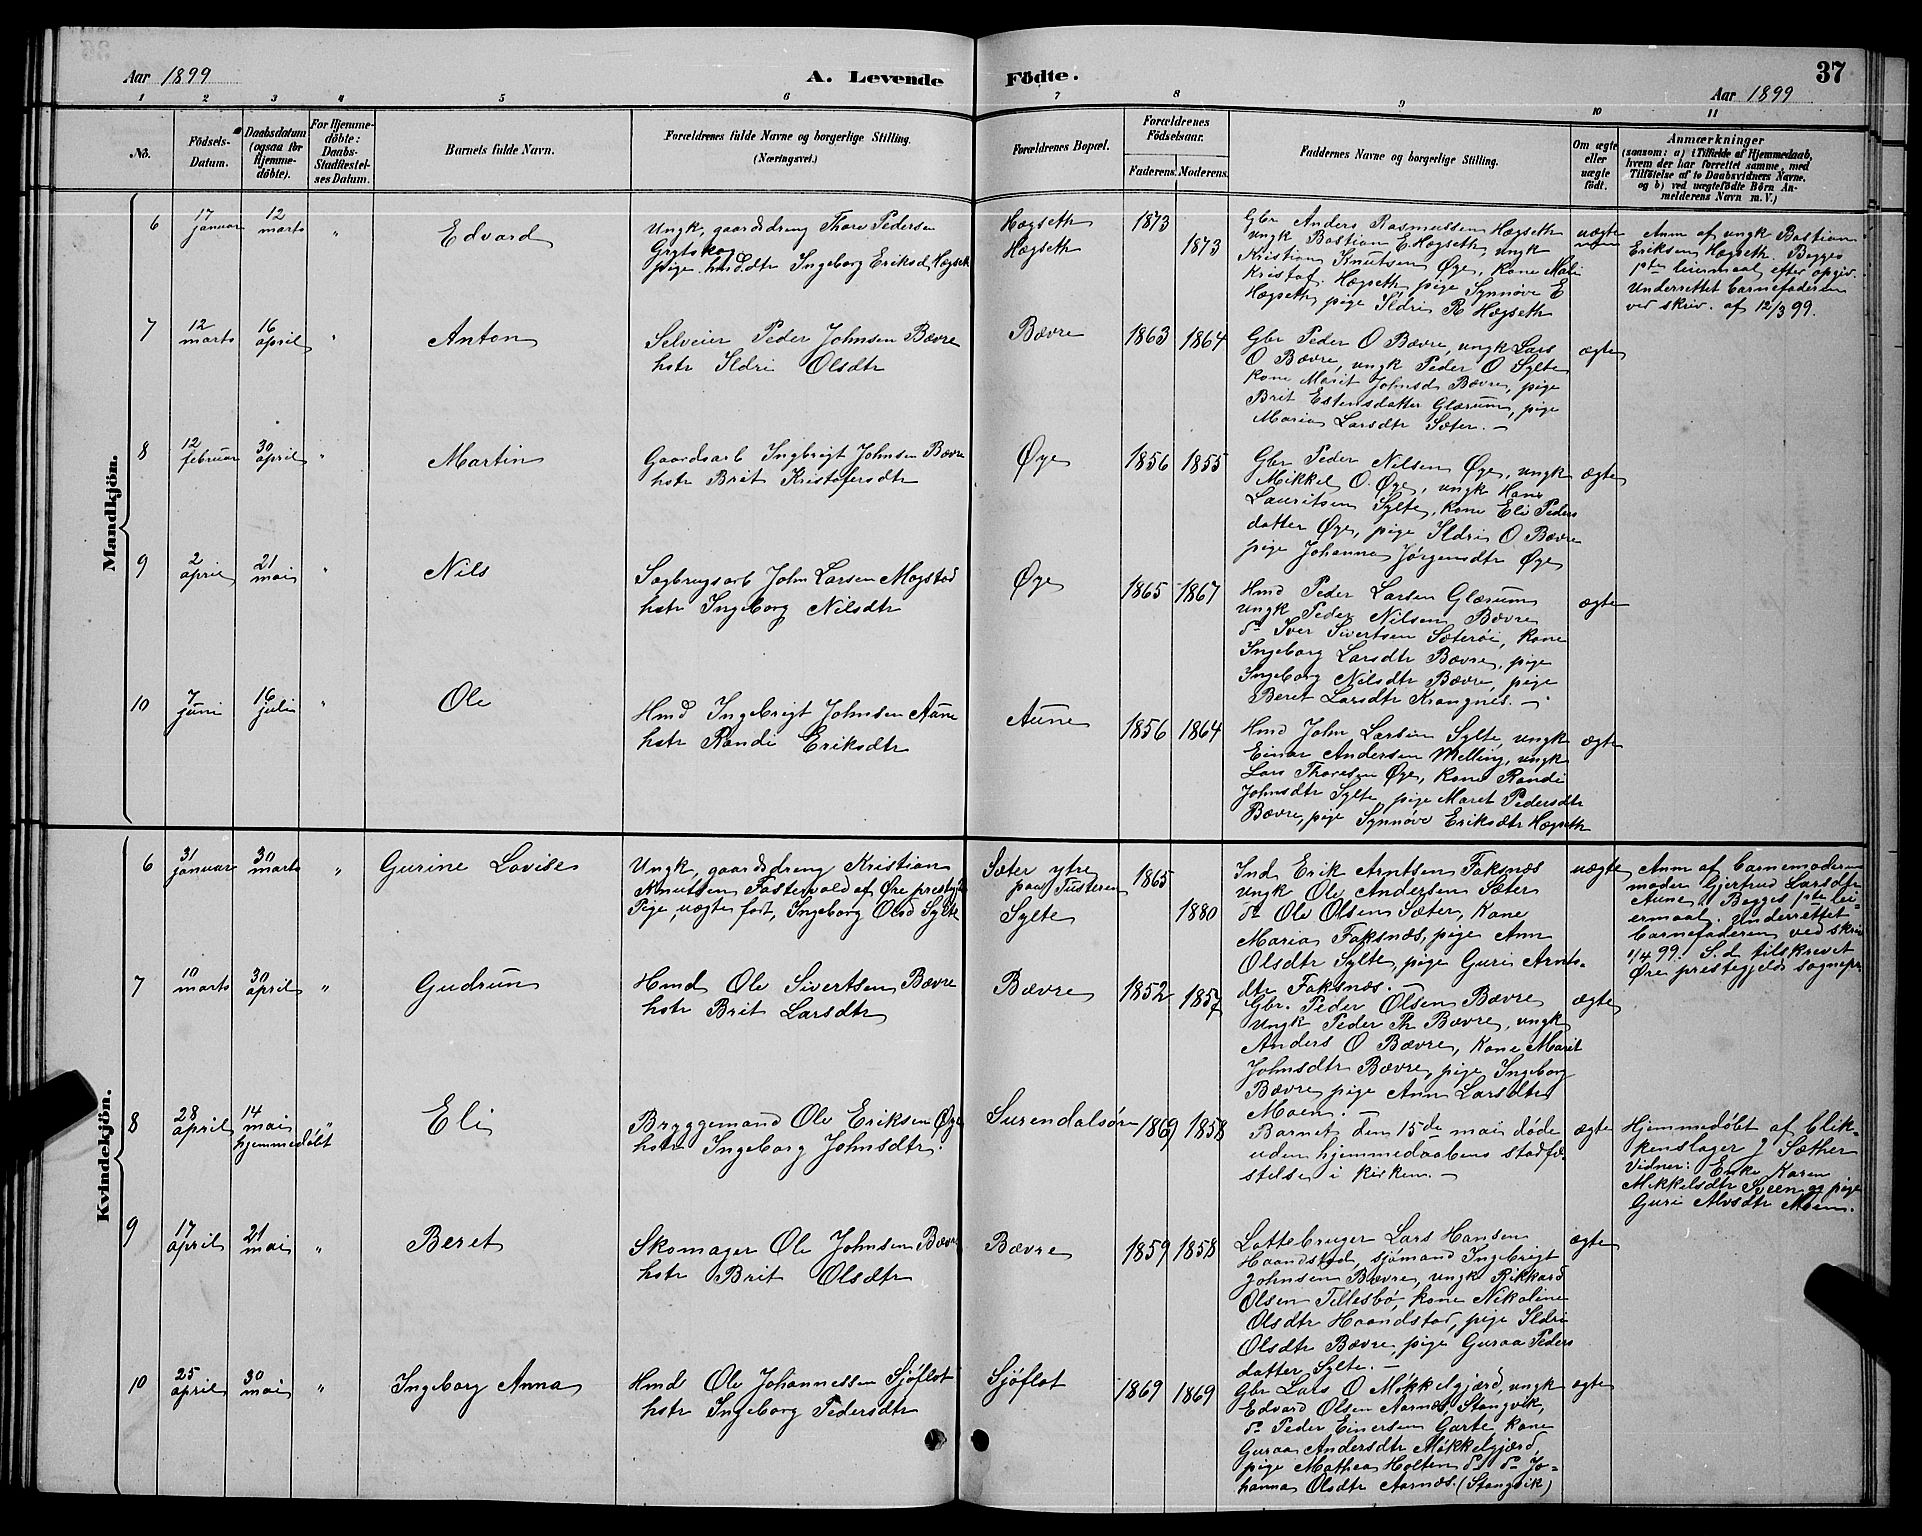 Aar 1899
A. Levende
Födte.
37
Aar 1899
1 2 3 4 5 6 7 8 9 10 11
No.
Födsels-
Datum.
Daabsdatum
(ogsaa for
Hjemme-
döbte).
For Hjemme-
döbte:
Daabs-
Stadfæstel-
ses Datum.
Barnets fulde Navn.
Forældrenes fulde Navne og borgerlige Stilling.
(Næringsvei.)
Forældrenes Bopæl.
Forældrenes
Födselsaar.
Faderens. Moderens.
Faddernes Navne og borgerlige Stilling.
Om ægte
eller
uægte
födt.
Anmærkninger
(saasom: a) i Tilfælde af Hjemmedaab,
hvem der har forrettet samme, med
Tilföielse af to Daabsvidners Navne.
og b) ved uægtefödte Börn An-
melderens Navn m. V.)
Mandkjön.
6
17
januar
12
marts
"
Edvard
Ungk, gaardsdreng Thore Pedersen
pige hmd.dtr Ingeborg Eriksd Hægseth
Hægseth
Hægseth
1873
1873
Gbr Anders Rasmussen Hægseth
ungk Bastian E. Hægseth, ungk
Kristian Knutsen Øye, Kone Mali
Kristof. Hægseth, pige Synnøve E
Hægseth, pige Ildri R Hægseth
uægte
Anm af ungk Bastian
Eriksen Hægseth. Begges
1ste leiermaal efter opgiv.
Underrettet barnefaderen
ved skriv. af 12/3 99.
7
12
marts
16
april
"
Anton
Selveier Peder Johnsen Bævre
hstr Ildri Olsdtr
Bævre
1863 1864
Gbr Peder O Bævre, ungk Lars
O Bævre, ungk Peder O Sylte
Kone Marit Johnsd Bævre, pige
Brit Estensdatter Glærum, pige
Maria Larsdtr Sæter. —
ægte
8
12
februar
30
april
"
Martin
Gaardsarb Ingbrigt Johnsen Bævre
hstr Brit Kristofersdtr
Øye
1856 1855
Gbr Peder Nilsen Øye, ungk
Mikkel O. Øye, ungk Hans
Lauritsen Sylte, Kone Eli Peders
datter Øye, pige Ildri O Bævre
pige Johanna Jørgensdtr Øye
ægte
9
2
april
21
mai
"
Nils
Sagbrugsarb John Larsen Mogstad
hstr Ingeborg Nilsdtr
Øye
1865 1867
Hmd Peder Larsen Glærum
ungk Peder Nilsen Bævre
do Iver Sivertsen Sæterøi, Kone
Ingeborg Larsdtr Bævre, pige
Ingeborg Nilsdtr Bævre, pige
Beret Larsdtr Krangnes. —
ægte
10
7
juni
16
juli
"
Ole
Hmd Ingebrigt Johnsen Aune
hstr Randi Eriksdtr
Aune
1856 1864
Hmd John Larsen Sylte, ungk
Einar Andersen Melling, ungk
Lars Thoresen Øye, Kone Randi
Johnsdtr Sylte, pige Maret Pedersdtr
Bævre, pige Synnøve Eriksdtr Hægseth
ægte
Kvindekjön.
6
31
januar
30
marts
"
Gurine Lovise
Ungk, gaardsdreng Kristian
Knutsen Fostervold af Øre prestgj
Pige, uægte født, Ingeborg Olsd Sylte
Sæter ytre
paa Tusteren
Sylte
1865
1880
Ind Erik Arntsen Faksnæs
ungk Ole Andersen Sæter
do Ole Olsen Sæter, Kone
Maria Faksnæs, pige Ann
Olsdtr Sylte, pige Guri Arnts-
dtr Faksnæs. —
uægte
Anm af barnemoderens
moder Gjertrud Larsdtr
Aune. Begges 1ste lei-
ermaal. Underrettet
barnefaderen ved skriv
1/4 99. S. d. tilskrevet
Øre prestegjelds sognepr
7
10
marts
30
april
"
Gudrun
Hmd Ole Sivertsen Bævre
hstr Brit Larsdtr
Bævre
1852 1857
Gbr. Peder Olsen Bævre
Ungk Peder Th Bævre, ungk
Anders O Bævre, Kone Marit
Johnsdtr Bævre, pige Ingeborg
Bævre pige Ann Larsdtr
Moen. —
ægte
8
28
april
14
mai
hjemmedøbt
"
Eli
Bryggemand Ole Eriksen Øye
hstr Ingeborg Johnsdtr.
Surendalsøren
1869 1858
Barnet den 15de mai døde
uden hjemmedaabens stadfæ-
stelse i kirken. —
ægte
Hjemmedøbt af blik-
kenslager J Sæther
Vidner: Enke Karen
Mikkelsdtr Sveen og pige
Guri Alvsdtr Moen.
9
17
april
21
mai
"
Beret
Skomager Ole Johnsen Bævre
hstr Brit Olsdtr
Bævre
1859 1858
Lottebruger Lars Hansen
Haandstad, sjømand Ingebrigt
Johnsen Bævre, ungk Rikkard
Olsen Tillesbø, Kone Nikoline
Olsdtr Haandstad, pige Ildri
Olsdtr Bævre, pige Guraa Peders
datter Sylte. —
ægte
10
25
april
30
mai
"
Ingeborg Anna
Hmd Ole Johannessen Sjøflot
hstr Ingeborg Pedersdtr
Sjøflot
1869 1869
Gbr Lars O Møkkelgjærd, ungk
Edvard Olsen Aarnæs, Stangvik,
do Peder Einersen Garte Kone
Guraa Andersdtr Møkkelgjærd,
pige Mathea Holten do do Jo-
hanna Olsdtr Aarnæs. (Stangvik)
ægte